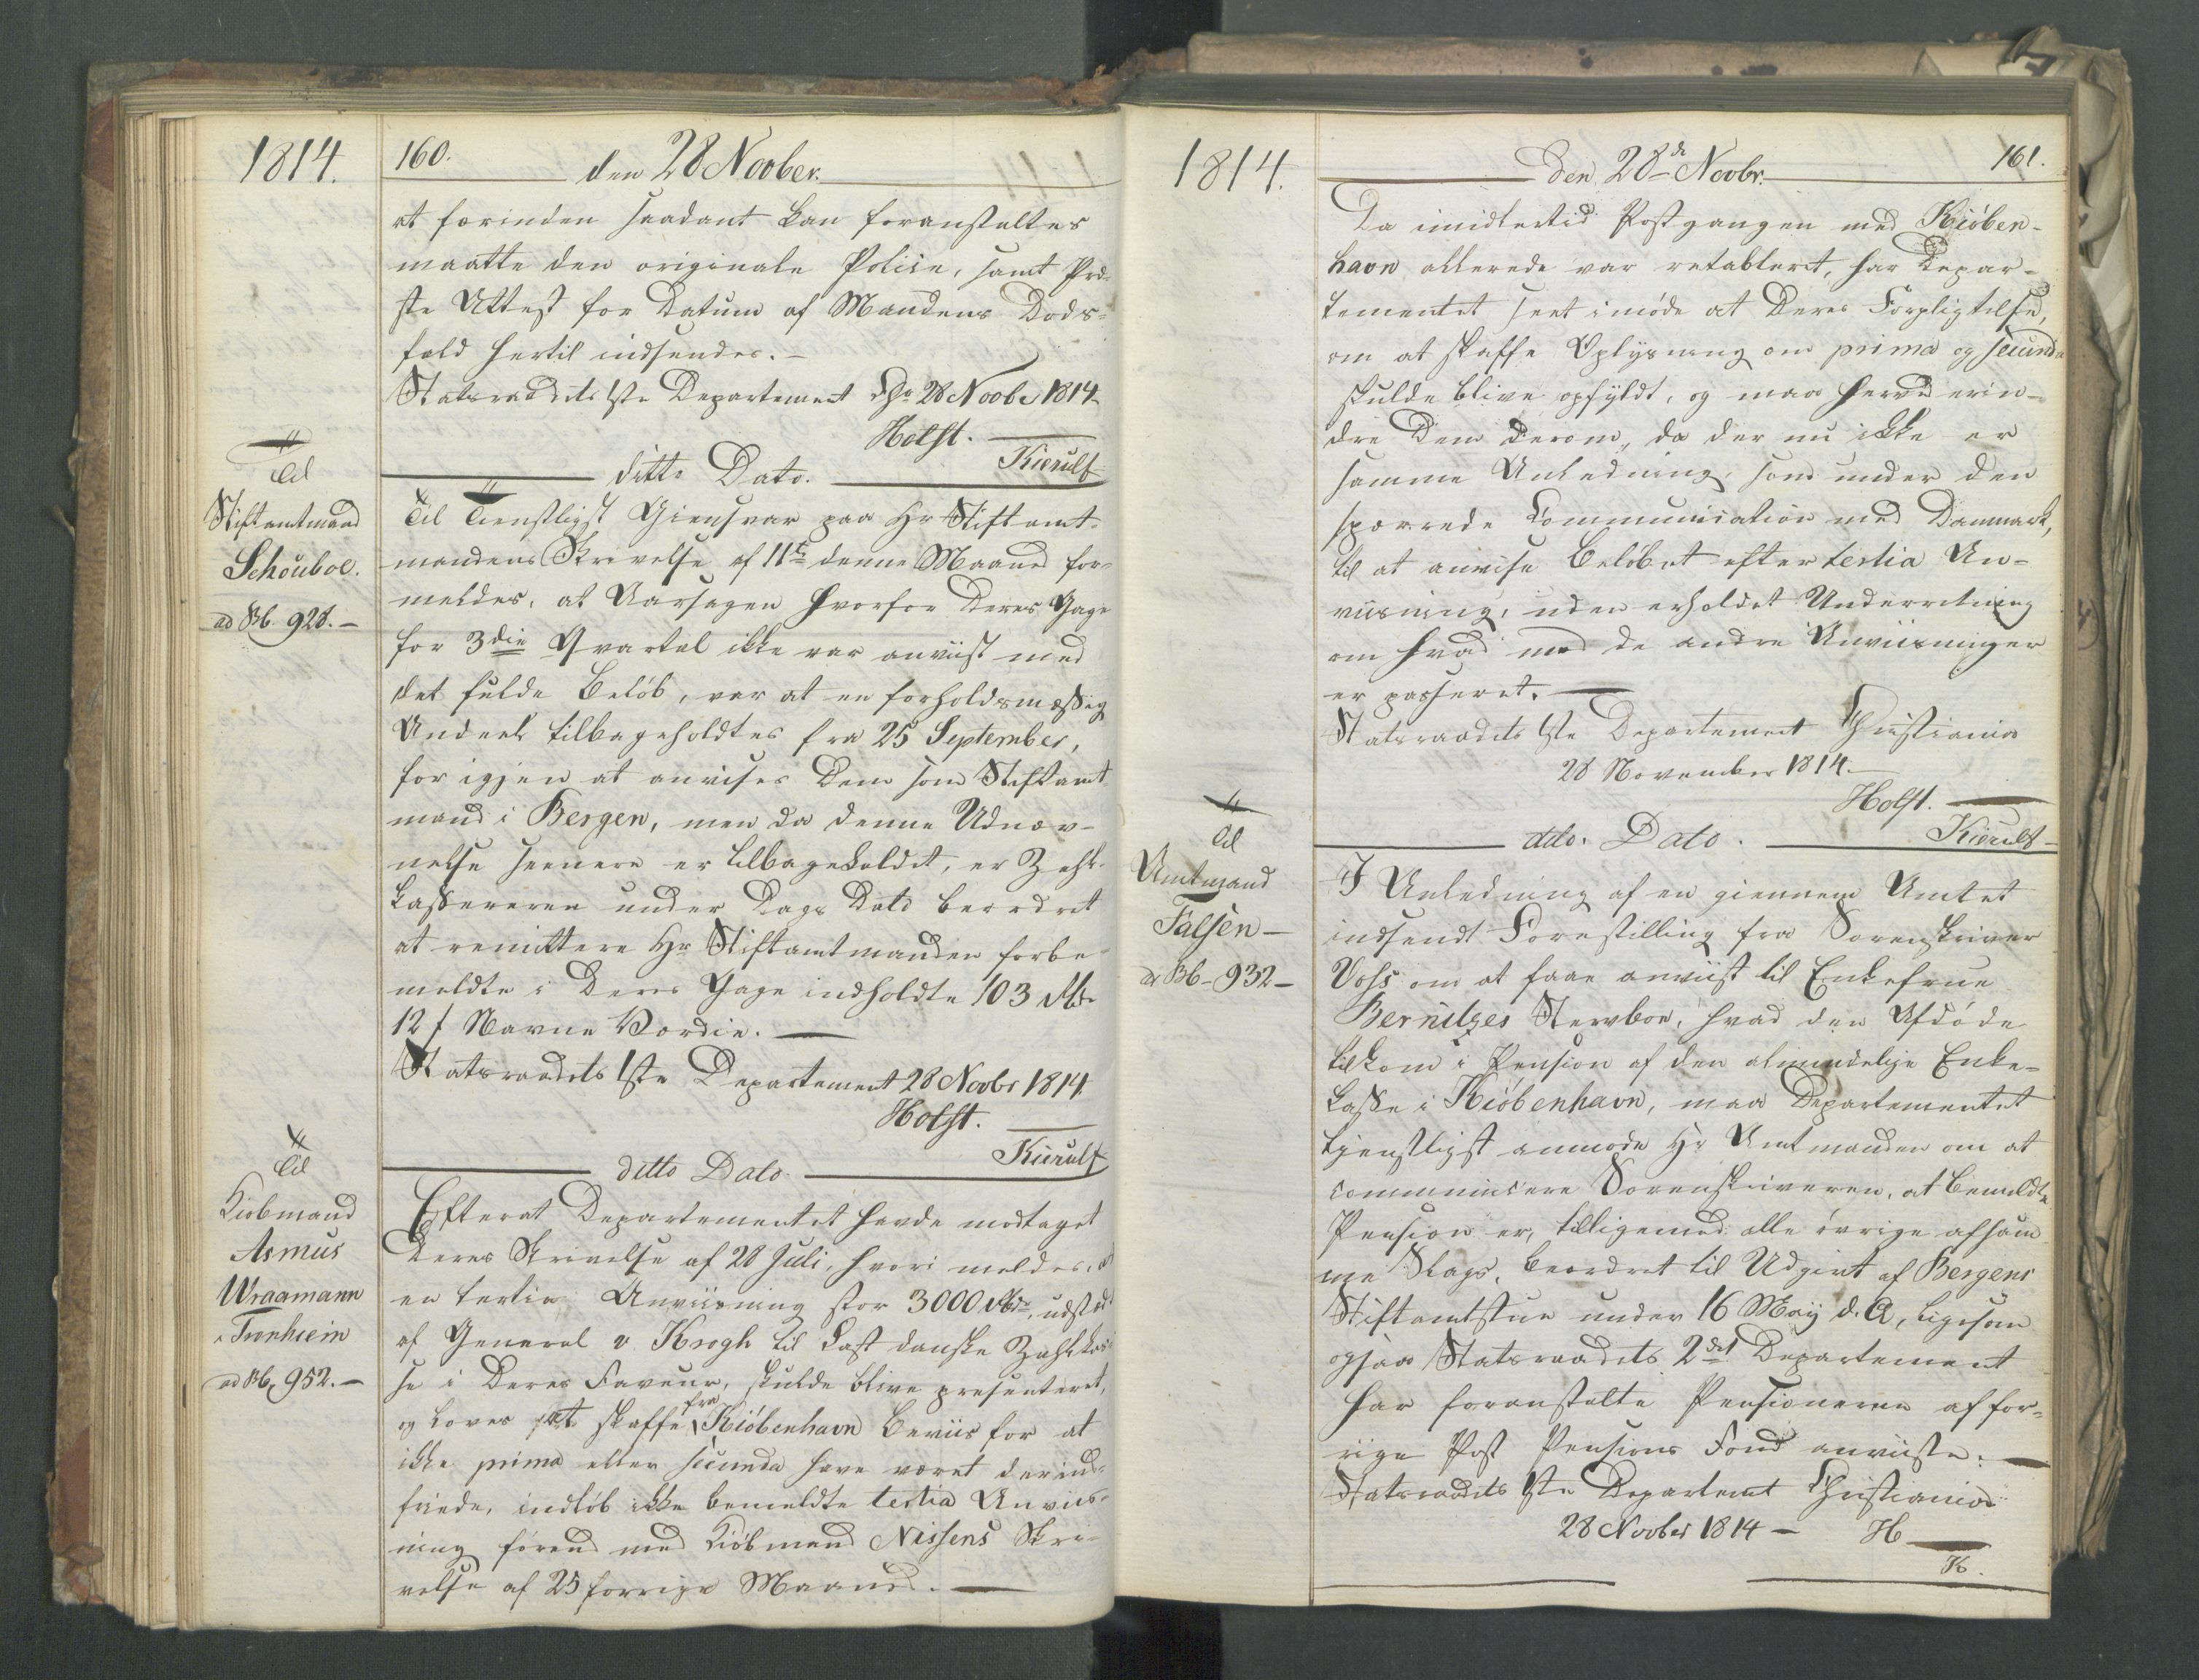 1814.
160.
den 28 Novber.
at forinden saadant kan foranstaltes
maatte den originale Police, samt Præ-
ste Attest for Datum af Mandens Døds-
fald hertil indsendes.-
Statsraadets 1ste Departement Cha 28 Novbr 1814
Holst.
Kierulf
ditto Dato.
Til
Stiftamtmand
Schouboe.
ad Bb. 928.-
Til Tienstligst Giensvar paa Hr Stiftamt-
mandens Skrivelse af 11te denne Maaned for-
meldes, at Aarsagen hvorfor Deres Gage
for 3die Qvartal ikke var anviist med
det fulde Beløb, var at en forholdsmæssig
Andeel tilbageholdtes fra 25 September,
for igjen at anvises Dem som Stiftamt
mand i Bergen, men da denne Udnæv-
nelse seenere er tilbagekaldt, er Zahl-
kassereren under Dags Dato beordret
at remittere Hr Stiftamtmanden forbe-
meldte i Deres Gage indholdte 103 Rbdr
12 s Navne Værdie.
Statsraadets 1ste Departement 28 Novbr 1814.
Holst.
Kierulf
ditto Dato
Til
Kiøbmand
Asmus
Wraamann
i Tronhiem
ad Bb. 952.-
Efterat Departementet havde modtaget
Deres Skrivelse af 28 Juli, hvori meldes, at
en tertia Anviisning stor 3000 Rbdr, udstædt
af General v. Krogh til Last danske Zahlkas-
se i Deres Faveur, skulde blive presenteret,
og loves at skaffe fra Kiöbenhavn Beviis for at
ikke prima eller secunda have været derind-
friede, indløb ikke bemeldte tertia Anviis-
ning førend med Kiöbmand Nissens Skri-
velse af 25 forrige Maaned.
1814.
Den 28de Novbr.
161.
Da imidlertid Postgangen med Kiöben-
havn allerede var retableret, har Depar-
tementet seet imøde at Deres Forpligtelse,
om at skaffe Oplysning om prima og secunda
skulde blive opfyldt, og maa herved erin-
dre Dem derom, da der nu ikke er
samme Anledning, som under den
spærrede Communication med Danmark,
til at anvise Beløbet efter tertia An-
viisning, uden erholdet Underretning
om hvad med de andre Anviisninger
er passeret.
Statsraadets 1ste Departement Christiania
28 November 1814.
Holst.
Kierulf
dito. Dato.
Til
Amtmand
Falsen-
ad Bb-932-
I Anledning af en giennem Amtet
indsendt Forestilling fra Sorenskriver
Voss om at faae anviist til Enkefrue
Bernitzes Stervboe, hvad den Afdøde
tilkom i Pension af den almindelige Enke-
kasse i Kiöbenhavn, maa Departementet
tjenstligst anmode Hr Amtmanden om at
communicere Sorenskriveren, at bemeldte
Pension er, tilligemed alle øvrige afsam-
me Slags, beordret til Udgivt af Bergens
Stiftamtstue under 16 May d. A, ligesom
ogsaa Statsraadets 2det Departement
har foranstalte Pensionerne af for-
rige Post Pensions Fond anviiste.
Statsraadets 1ste Departemt Christiania
28 Novber 1814 - H
K.